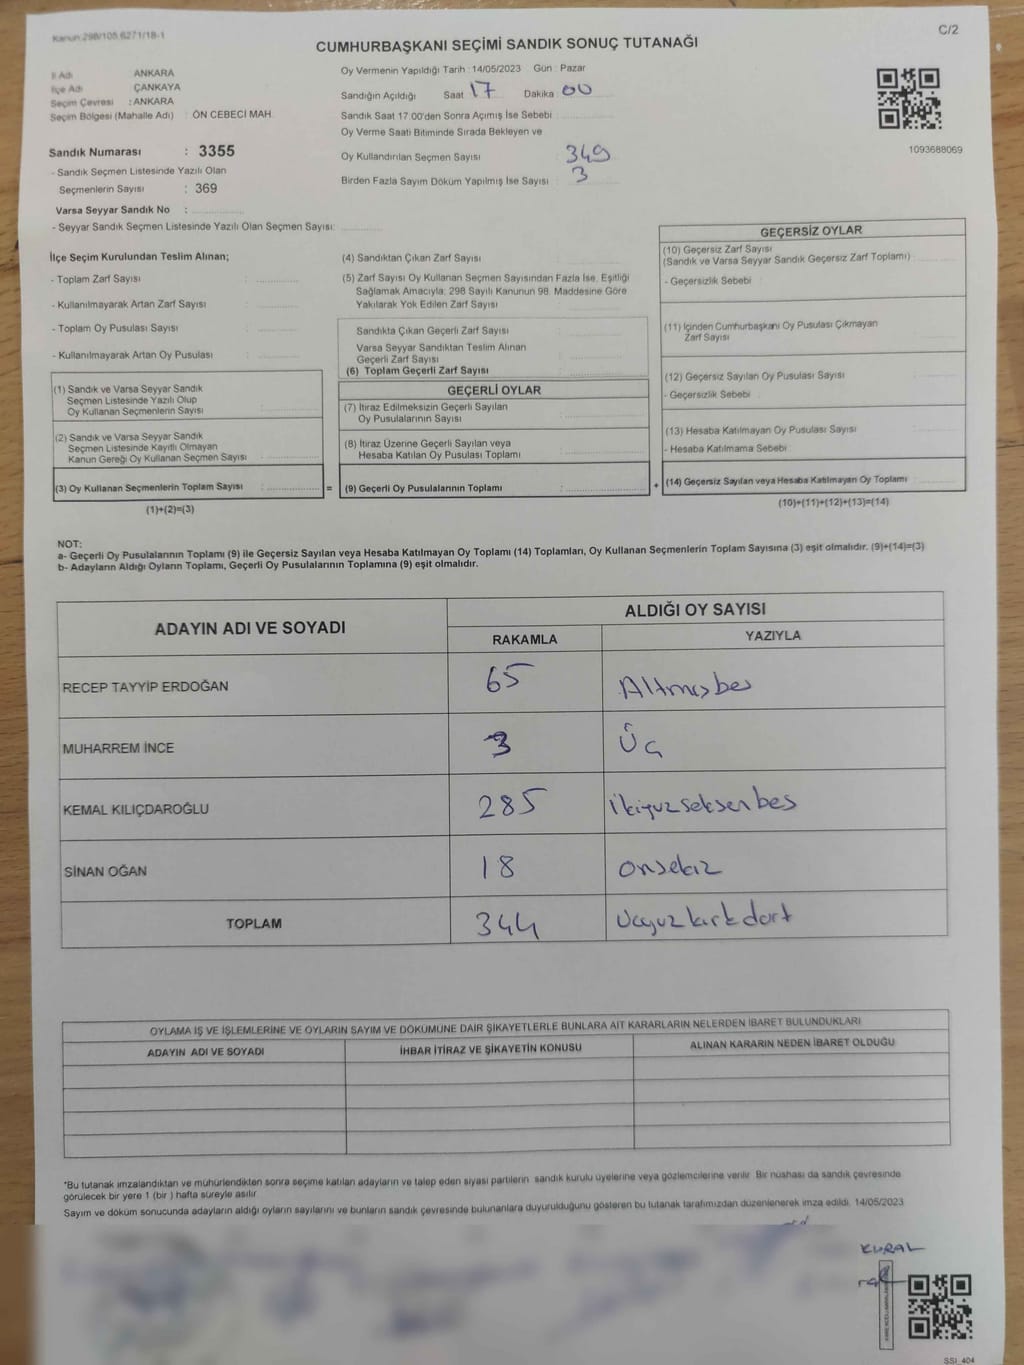 Kanun:298/105,6271/18-1
C/2
CUMHURBAŞKANI SEÇİMİ SANDIK SONUÇ TUTANAĞI
İl Adı ANKARA
İlçe Adı ÇANKAYA
Seçim Çevresi : ANKARA
Seçim Bölgesi (Mahalle Adı) : ÖN CEBECİ MAH.
Sandık Numarası : 3355
- Sandık Seçmen Listesinde Yazılı Olan
Seçmenlerin Sayısı : 369
Varsa Seyyar Sandık No :
- Seyyar Sandık Seçmen Listesinde Yazılı Olan Seçmen Sayısı:
Oy Vermenin Yapıldığı Tarih : 14/05/2023 Gün : Pazar
Sandığın Açıldığı Saat 17 Dakika : 00
Sandık Saat 17.00'den Sonra Açımış İse Sebebi
Oy Verme Saati Bitiminde Sırada Bekleyen ve
Oy Kullandırılan Seçmen Sayısı : 349
Birden Fazla Sayım Döküm Yapılmış İse Sayısı : 3
1093688069
İlçe Seçim Kurulundan Teslim Alınan;
- Toplam Zarf Sayısı :
- Kullanılmayarak Artan Zarf Sayısı :
- Toplam Oy Pusulası Sayısı :
- Kullanılmayarak Artan Oy Pusulası :
(1) Sandık ve Varsa Seyyar Sandık
Seçmen Listesinde Yazılı Olup
Oy Kullanan Seçmenlerin Sayısı :
(2) Sandık ve Varsa Seyyar Sandık
Seçmen Listesinde Kayıtlı Olmayan
Kanun Gereği Oy Kullanan Seçmen Sayısı :
(3) Oy Kullanan Seçmenlerin Toplam Sayısı :
(1)+(2)=(3)
(4) Sandıktan Çıkan Zarf Sayısı :
(5) Zarf Sayısı Oy Kullanan Seçmen Sayısından Fazla İse, Eşitliği
Sağlamak Amacıyla; 298 Sayılı Kanunun 98. Maddesine Göre
Yakılarak Yok Edilen Zarf Sayısı :
Sandıkta Çıkan Geçerli Zarf Sayısı :
Varsa Seyyar Sandıktan Teslim Alınan
Geçerli Zarf Sayısı :
(6) Toplam Geçerli Zarf Sayısı :
GEÇERLİ OYLAR
(7) İtiraz Edilmeksizin Geçerli Sayılan
Oy Pusulalarının Sayısı :
(8) İtiraz Üzerine Geçerli Sayılan veya
Hesaba Katılan Oy Pusulası Toplamı :
= (9) Geçerli Oy Pusulalarının Toplamı :
GEÇERSİZ OYLAR
(10) Geçersiz Zarf Sayısı
(Sandık ve Varsa Seyyar Sandık Geçersiz Zarf Toplamı) :
- Geçersizlik Sebebi :
(11) İçinden Cumhurbaşkanı Oy Pusulası Çıkmayan
Zarf Sayısı
(12) Geçersiz Sayılan Oy Pusulası Sayısı :
- Geçersizlik Sebebi :
(13) Hesaba Katılmayan Oy Pusulası Sayısı :
- Hesaba Katılmama Sebebi :
+ (14) Geçersiz Sayılan veya Hesaba Katılmayan Oy Toplamı :
(10)+(11)+(12)+(13)=(14)
NOT:
a- Geçerli Oy Pusulalarının Toplamı (9) ile Geçersiz Sayılan veya Hesaba Katılmayan Oy Toplamı (14) Toplamları, Oy Kullanan Seçmenlerin Toplam Sayısına (3) eşit olmalıdır. (9)+(14)=(3)
b- Adayların Aldığı Oyların Toplamı, Geçerli Oy Pusulalarının Toplamına (9) eşit olmalıdır.
ADAYIN ADI VE SOYADI ALDIĞI OY SAYISI
RAKAMLA YAZIYLA
RECEP TAYYİP ERDOĞAN 65 Altmışbeş
MUHARREM İNCE 3 Üç
KEMAL KILIÇDAROĞLU 285 İkiyuzseksenbeş
SİNAN OĞAN 18 onsekiz
TOPLAM 344 Uçyuzkırkdört
OYLAMA İŞ VE İŞLEMLERİNE VE OYLARIN SAYIM VE DÖKÜMÜNE DAİR ŞİKAYETLERLE BUNLARA AİT KARARLARIN NELERDEN İBARET BULUNDUKLARI
ADAYIN ADI VE SOYADI İHBAR İTİRAZ VE ŞİKAYETİN KONUSU ALINAN KARARIN NEDEN İBARET OLDUĞU
*Bu tutanak imzalandıktan ve mühürlendikten sonra seçime katılan adayların ve talep eden siyasi partilerin sandık kurulu üyelerine veya gözlemcilerine verilir. Bir nüshası da sandık çevresinde
görülecek bir yere 1 (bir ) hafta süreyle asılır.
Sayım ve döküm sonucunda adayların aldığı oyların sayılarını ve bunların sandık çevresinde bulunanlara duyurulduğunu gösteren bu tutanak tarafımızdan düzenlenerek imza edildi. 14/05/2023
KURAL
SSİ 404